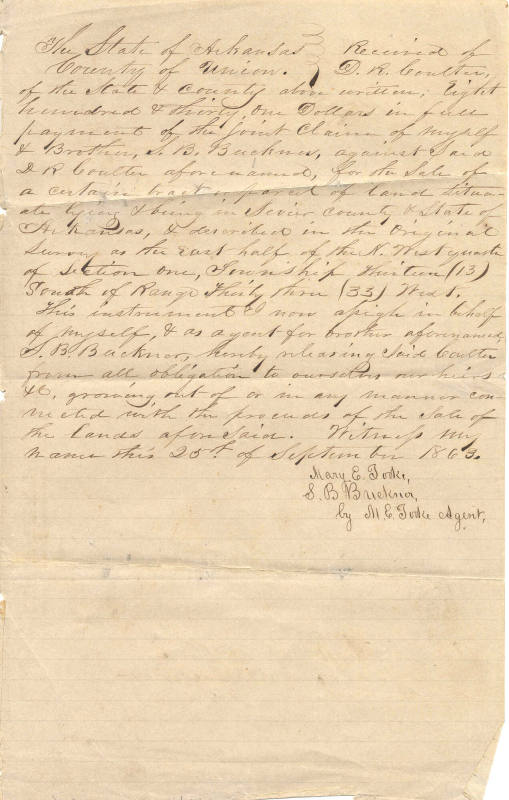 The State of Arkansas } Received of
County of Union. } D. R. Coulter,
of the State & County above written; Eight
hundred & thirty one Dollars in full
payment of the joint Claim of myself
& Brother, S. B. Buckner, against Said
D R Coulter aforenamed, for the Sale of
a certain tract or parcel of land situ-
ate lying & being in Sevier county & State of
Arkansas, & described in the Original
Survey as the East half of the N. West quarter
of Section One, Township thirteen (13)
South of Range Thirty three (33) West.
This instrument I now assign in behalf
of myself, & as agent for brother aforenamed,
S. B. Buckner, hereby releasing Said Coulter
from all obligation to ourselves our heirs
&C. growing out of or in any manner con-
nected with the proceeds of the Sale of
the lands afore Said. Witness my
name this 25th. of September 1863.
Mary E. Tooke,
S. B Buckner,
by M. E. Tooke Agent,